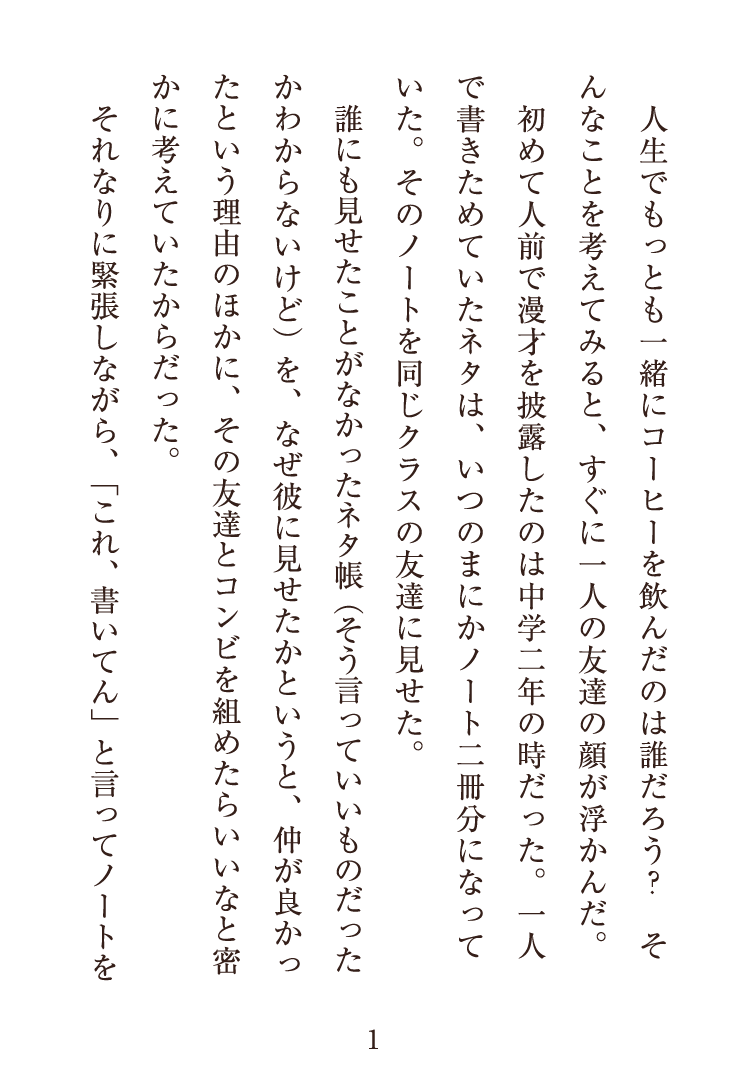 人生でもっとも一緒にコーヒーを飲んだのは誰だろう？　そ
んなことを考えてみると、すぐに一人の友達の顔が浮かんだ。
　初めて人前で漫才を披露したのは中学二年の時だった。一人
で書きためていたネタは、いつのまにかノート二冊分になって
いた。そのノートを同じクラスの友達に見せた。
　誰にも見せたことがなかったネタ帳（そう言っていいものだった
かわからないけど）を、なぜ彼に見せたかというと、仲が良かっ
たという理由のほかに、その友達とコンビを組めたらいいなと密
かに考えていたからだった。
　それなりに緊張しながら、「これ、書いてん」と言ってノートを
1